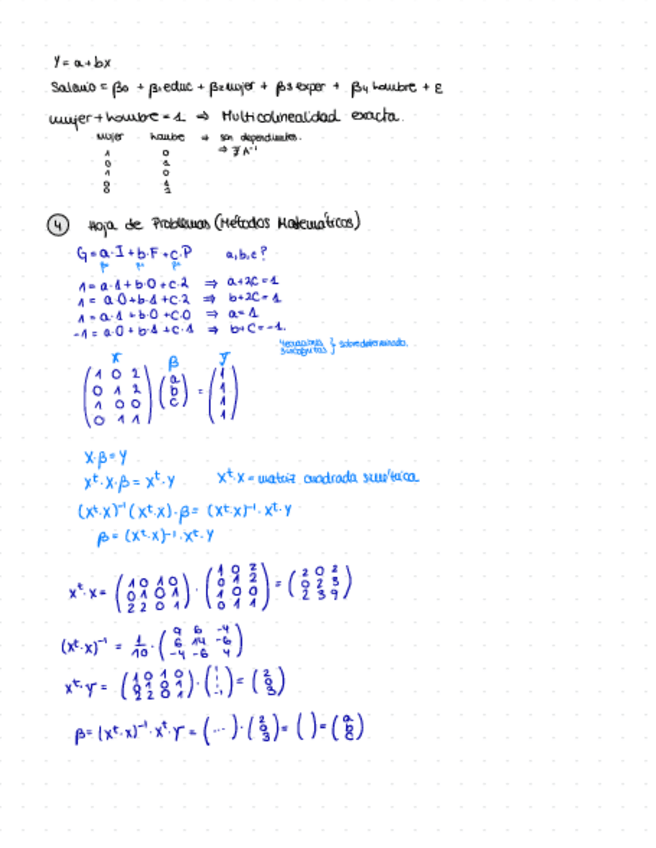 Y = a + bx
Salario = β0 + β1 educ + β2 mujer + β3 exper + β4 hombre + ε
mujer + hombre = 1 ⇒ Multicolinealidad exacta.
Mujer hombre ⇒ son dependientes.
1 0 ⇒ ∄ A⁻¹
0 1
1 0
0 1
④ Hoja de Problemas (Métodos Matemáticos)
G = a·I + b·F + c·P a, b, c?
1 = a·1 + b·0 + c·2 ⇒ a + 2c = 1
1 = a·0 + b·1 + c·2 ⇒ b + 2c = 1
1 = a·1 + b·0 + c·0 ⇒ a = 1
-1 = a·0 + b·1 + c·1 ⇒ b + c = -1.
} sobredeterminado.
X β Y
(1 0 2) (a) (1)
(0 1 2) (b) = (1)
(1 0 0) (c) (1)
(0 1 1) (1)
X·β = Y
Xᵗ·X·β = Xᵗ·Y Xᵗ·X = matriz cuadrada simétrica
(Xᵗ·X)⁻¹ (Xᵗ·X)·β = (Xᵗ·X)⁻¹·Xᵗ·Y
β = (Xᵗ·X)⁻¹·Xᵗ·Y
Xᵗ·X = (1 0 1 0 / 0 1 0 1 / 2 2 0 1) · (1 0 2 / 0 1 2 / 1 0 0 / 0 1 1) = (2 0 2 / 0 2 3 / 2 3 9)
(Xᵗ·X)⁻¹ = 1/10 · (9 6 -4 / 6 14 -6 / -4 -6 4)
Xᵗ·Y = (1 0 1 0 / 0 1 0 1 / 2 2 0 1) · (1 / 1 / 1 / -1) = (2 / 0 / 3)
β = (Xᵗ·X)⁻¹·Xᵗ·Y = (...)·(2 / 0 / 3) = ( ) = (a / b / c)